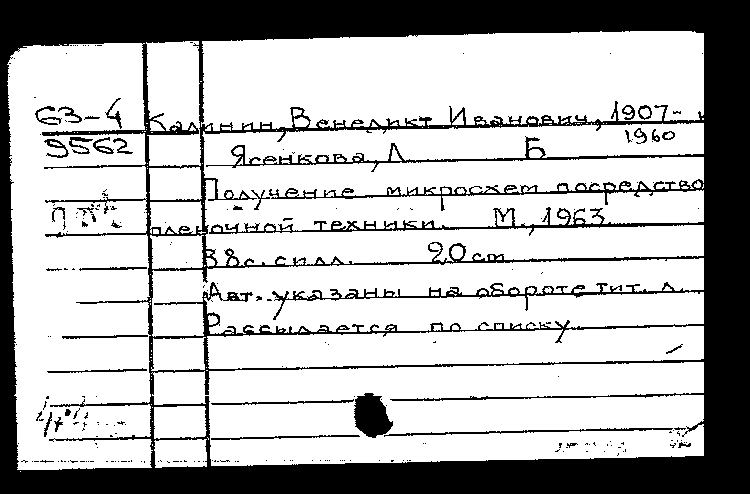 63-4 Калинин, Венедикт Иванович, 1907- и
1960
9562 Ясенкова, Л Б
Получение микросхем посредство
пленочной техники. М., 1963
38с. силл. 20 cm
Авт. указаны на обороте тит. л.
Рассылается по списку